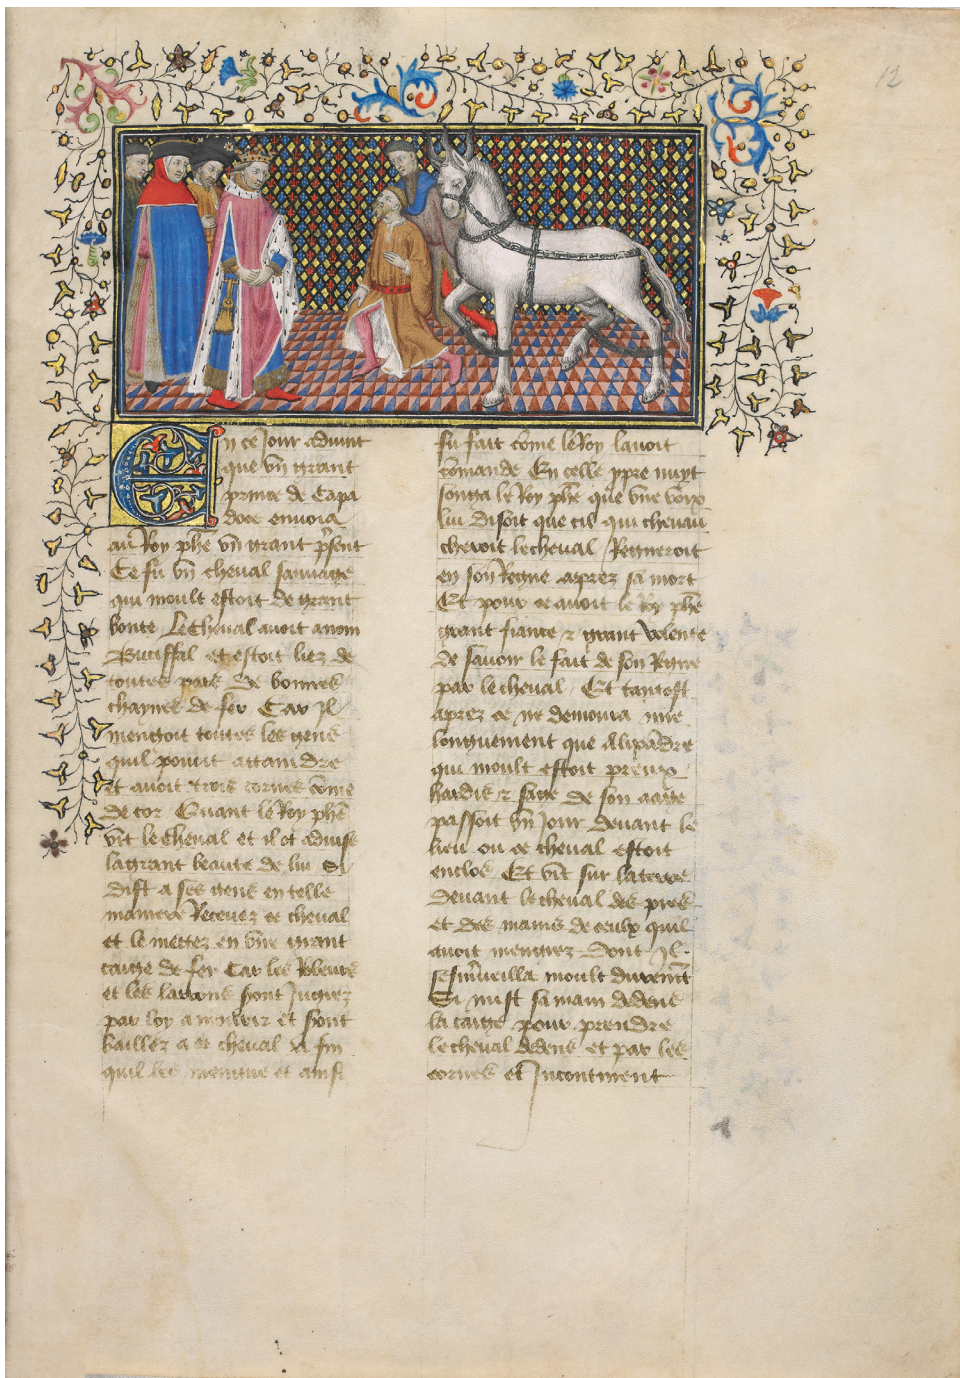 12
En ce Jour advint
que vng grant
prince de Capa
doce envoia
au Roy phē vng grant psent
Ce fu vng cheval sauvage
qui moult estoit de grant
bonte Le Cheval avoit a nom
Buciffal et estoit liez de
toutes pars de bonnes
chaynes de fer Car Il
mengoit toutes les gens
quil povoit attaindre
et avoit trois cornes cōme
de tor Quant le Roy phē
vit le cheval et il ot advise
la grant beaute de lui Si
dist a ses gens en telle
maniere Recevez ce cheval
et le mettez en vne grant
caige de fer Car les Robeurs
et les larrons sont Jugez
par loy a morir et sont
baillez a ce cheval A fin
quil les mengue et ainsi
fu fait cōme le Roy lavoit
cōmande En celle ppre nuyt
songa le Roy phē que vne voix
lui disoit que cil qui chevau
cheroit le cheval Regneroit
en son Regne aprez sa mort
Et pour ce avoit le Roy phē
grant fiance & grant volente
de savoir le fait de son Regne
par le cheval Et tantost
aprez ce ne demoura mie
longuement que Alixādre
qui moult estoit preux
hardis & sage de son aage
passoit vng Jour devant le
lieu ou ce cheval estoit
enclos Et vit sur la terre
devant le cheval des piez
et des mains de ceulx quil
avoit mengiez Dont Il
se smerveilla moult durement
Si mist sa main dedens
la caige pour prendre
le cheval dedens et par les
cornes et Incontinent